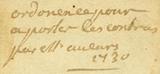 ordonence pour
aporter les contras
par est auleurs
1730